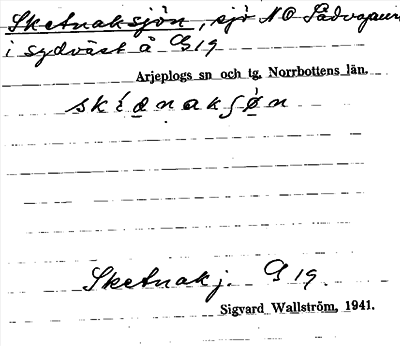 Sketnaksjön, sjö NO Sådvajaure
i sydväst å G 19
Arjeplogs sn och tg. Norrbottens län.
Sketnakj. G 19.
Sigvard Wallström, 1941.